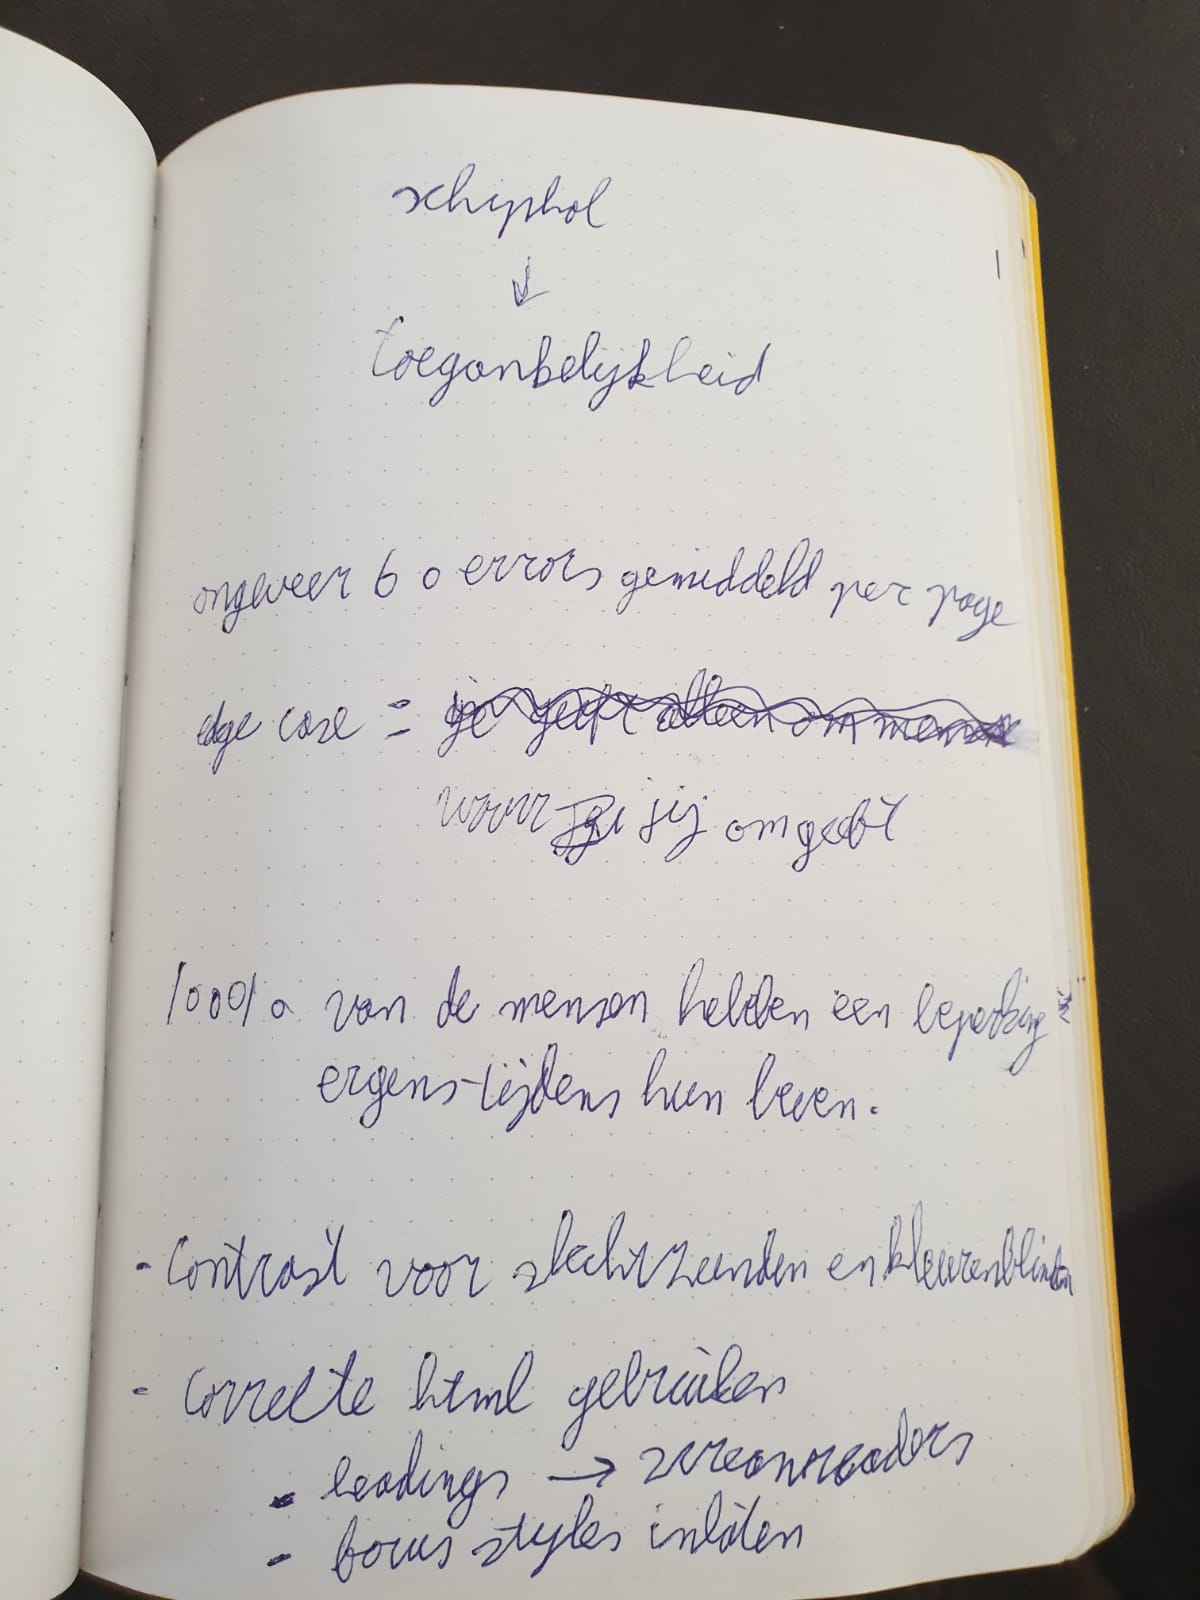 schiphol
↓
toegankelijkheid
ongeveer 60 errors gemiddeld per page
edge case = je geeft alleen om mensen
waar jij om geeft
100% van de mensen hebben een beperking
ergens tijdens hun leven.
- Contrast voor slechtzienden en kleurenblinden
- Correcte html gebruiken
- headings → screenreaders
- focus styles inladen